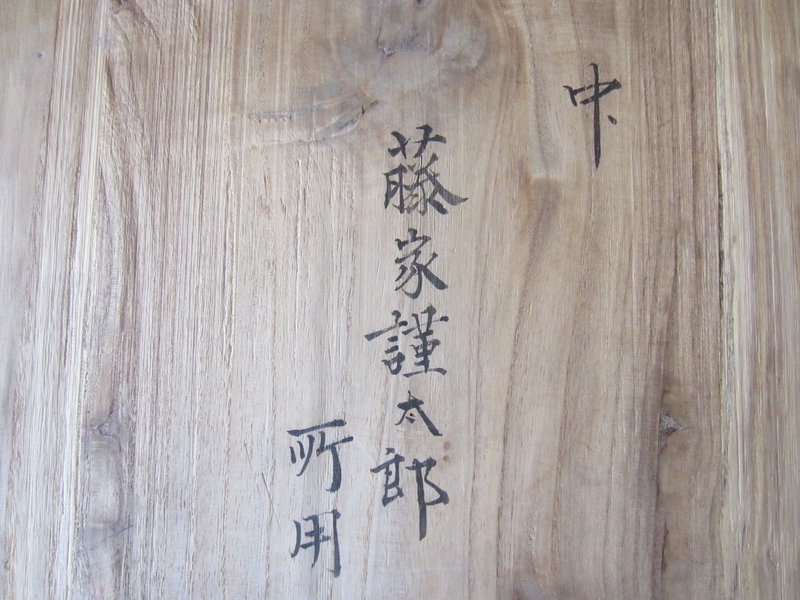 中、
藤家謹太郎
所用